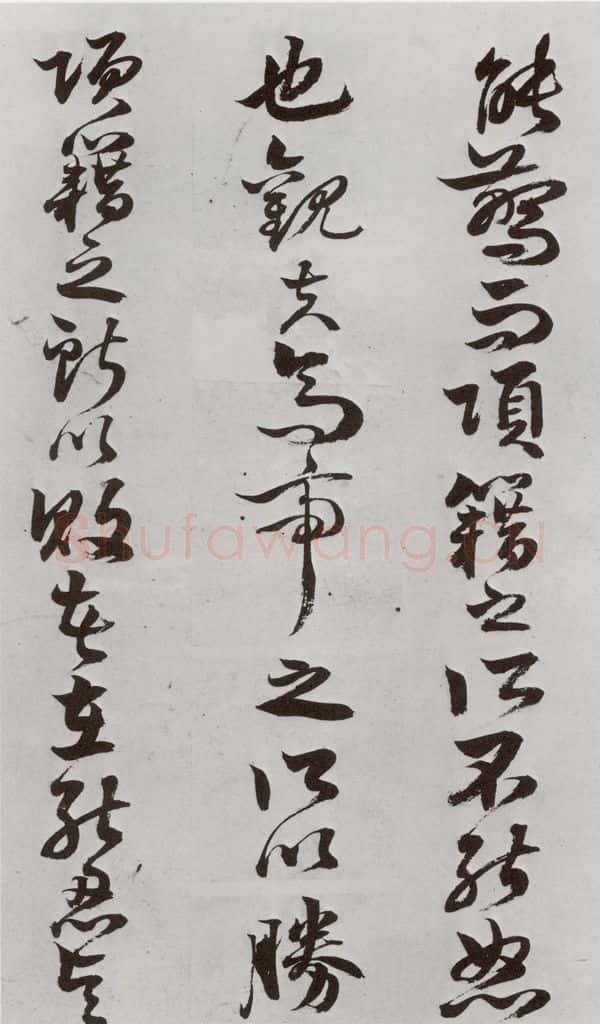 能驚而項籍之所不能怒
也觀夫高帝之所以勝
項籍之所以敗者在能忍與
Shufawang.cn